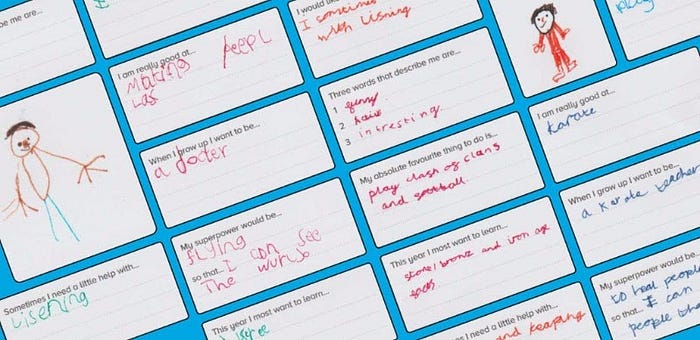 be me are...
I am really good at...
Making peepl
Las
When I grow up I want to be...
a docter
My superpower would be...
flying
so that... I can see
The wurld
Sometimes I need a little help with...
Lisening
This year I most want to learn...
I would like
I sometimes
with Lisning
Three words that describe me are...
1 funny
2
3 intresting
My absolute favourite thing to do is...
play clash of clans
and football
This year I most want to learn...
stone, bronze and iron age
I need a little help with...
and keeping
I am really good at...
Karate
When I grow up I want to be...
a Karate teacher
My superpower would be...
to heal people
so that... I can
people tha